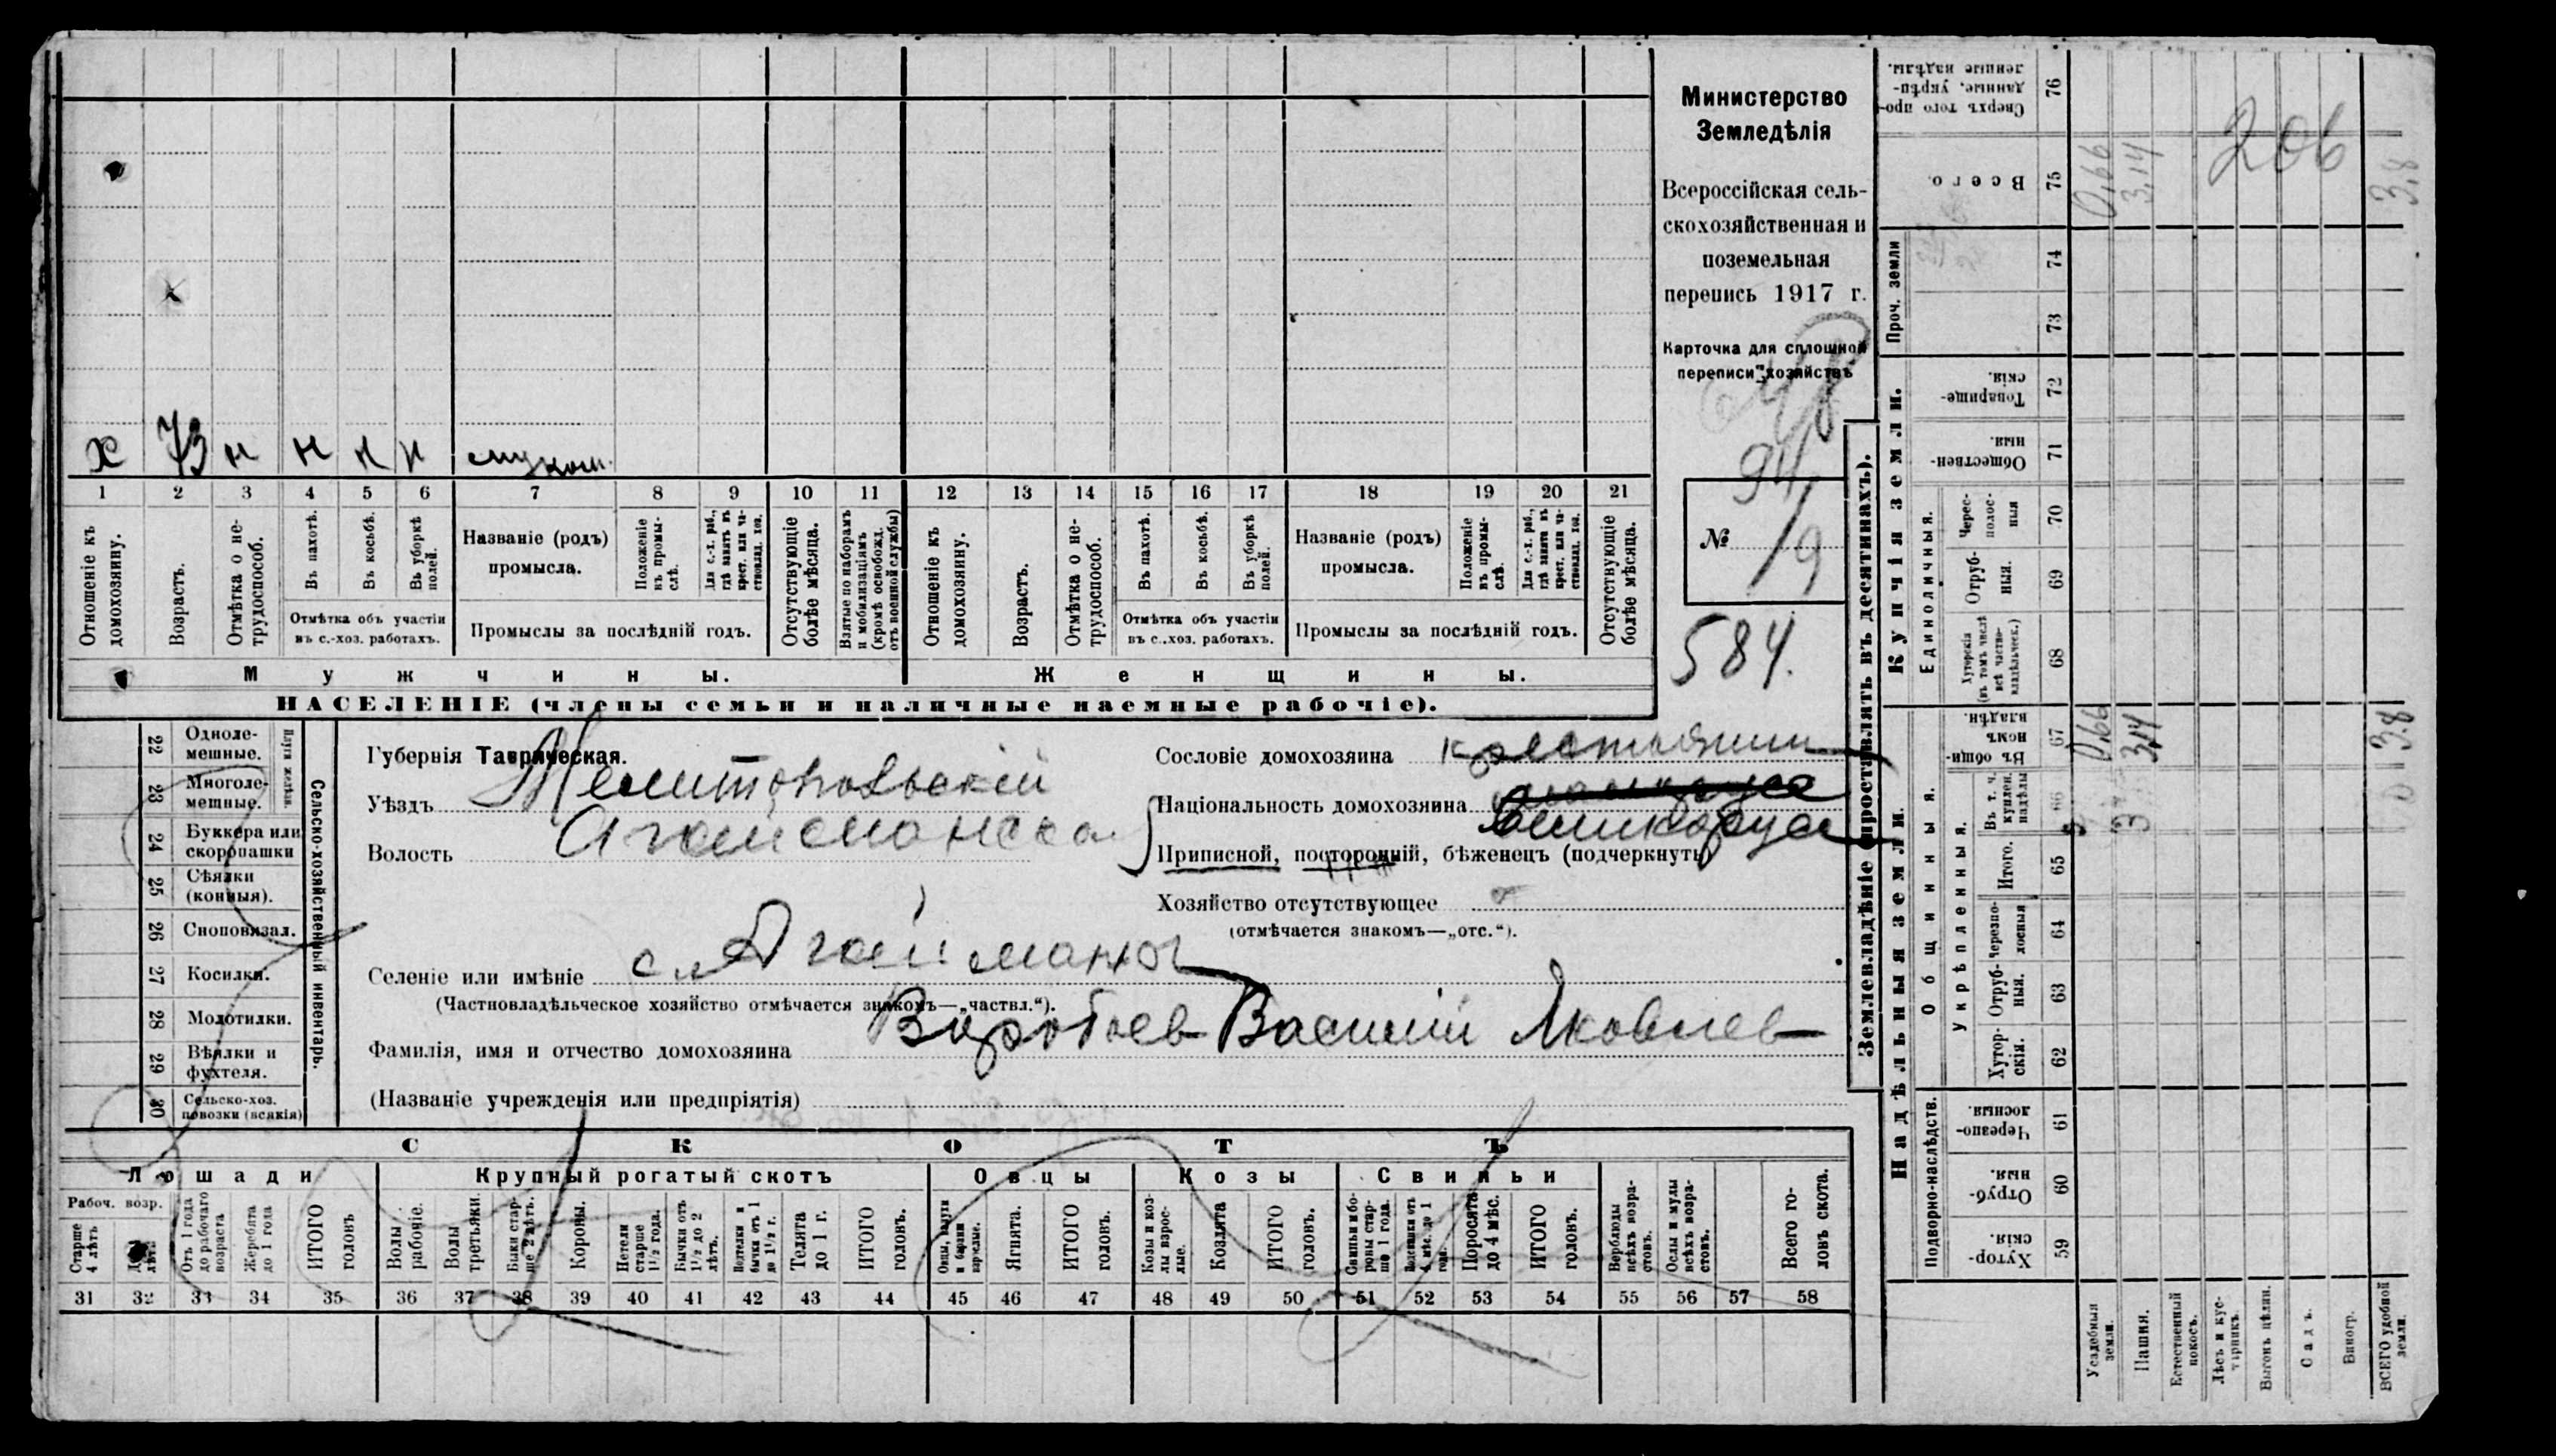 Министерство
Земледѣлія
Всероссійская сель-
скохозяйственная и
поземельная
перепись 1917 г.
Карточка для сплошной
переписи хозяйствъ
94/9
№
584.
х 73 н н н н
1 2 3 4 5 6 7 8 9 10 11 12 13 14 15 16 17 18 19 20 21
Отношеніе къ домохозяину.
Возрастъ.
Отмѣтка о не-трудоспособ.
Въ пахотѣ.
Въ косьбѣ.
Въ уборкѣ полей.
Отмѣтка объ участіи
въ с.-хоз. работахъ.
Названіе (родъ)
промысла.
Положеніе въ промы-слѣ.
Для с.-х. раб., гдѣ занятъ въ крест. или ча-стновлад. хоз.
Промыслы за послѣдній годъ.
Отсутствующіе болѣе мѣсяца.
Взятые по наборамъ и мобилизаціямъ (кромѣ освобожд. отъ военной службы)
Отношеніе къ домохозяину.
Возрастъ.
Отмѣтка о не-трудоспособ.
Въ пахотѣ.
Въ косьбѣ.
Въ уборкѣ полей.
Отмѣтка объ участіи
въ с.-хоз. работахъ.
Названіе (родъ)
промысла.
Положеніе въ промы-слѣ.
Для с.-х. раб., гдѣ занятъ въ крест. или ча-стновлад. хоз.
Промыслы за послѣдній годъ.
Отсутствующіе болѣе мѣсяца.
Мужчины. Женщины.
НАСЕЛЕНІЕ (члены семьи и наличные наемные рабочіе).
22 Одноле-мешные.
23 Многоле-мешные.
Плуги желѣзн.
24 Буккера или скоропашки
25 Сѣялки (конныя).
26 Сноповязал.
27 Косилки.
28 Молотилки.
29 Вѣялки и фухтеля.
30 Сельско-хоз. повозки (всякія)
Сельско-хозяйственный инвентарь.
Губернія Таврическая.
Уѣздъ Мелитопольскій
Волость Агайманская
Селеніе или имѣніе с. Агайманы
(Частновладѣльческое хозяйство отмѣчается знакомъ—„частвл.“).
Фамилія, имя и отчество домохозяина Воробьев Василій Яковлев
(Названіе учрежденія или предпріятія)
Сословіе домохозяина крестьянин
Національность домохозяина великорус
Приписной, посторонній, бѣженецъ (подчеркнуть)
Хозяйство отсутствующее
(отмѣчается знакомъ—„отс.“).
СКОТЪ
Лошади Крупный рогатый скотъ Овцы Козы Свиньи
Рабоч. возр.
Старше 4 лѣтъ
Отъ 1 года до рабочаго возраста
Жеребята до 1 года
ИТОГО головъ
Волы рабочіе.
Волы третьяки.
Быки стар-ше 2 лѣтъ.
Коровы.
Нетели старше 1½ года.
Бычки отъ 1½ до 2 лѣтъ.
Нетелки и бычки отъ 1 до 1½ г.
Телята до 1 г.
ИТОГО головъ.
Овцы, валухи и бараны взрослые.
Ягнята.
ИТОГО головъ.
Козы и коз-лы взрос-лые.
Козлята
ИТОГО головъ.
Свиньи и бо-ровы стар-ше 1 года.
Подсвинки отъ 4 мѣс. до 1 года.
Поросята до 4 мѣс.
ИТОГО головъ.
Верблюды всѣхъ возра-стовъ.
Ослы и мулы всѣхъ возра-стовъ.
Всего го-ловъ скота.
31 32 33 34 35 36 37 38 39 40 41 42 43 44 45 46 47 48 49 50 51 52 53 54 55 56 57 58
Землевладѣніе (проставлять въ десятинахъ).
Сверхъ того про-данные, укрѣп-ленные надѣлы. 76
Всего. 75 0,66 3,14 3,8
206
Проч. земли 74 73
Купчія земли.
Товарище-скія. 72
Обществен-ныя. 71
Единоличныя.
Черес-полос-ныя 70
Отруб-ныя. 69
Хуторскія (въ томъ числѣ всѣ частно-владѣльческ.) 68
Надѣльныя земли.
Общинныя.
Въ общи-нномъ владѣн. 67 0,66 3,14 3.8
Въ т. ч. куплен. надѣлы 66
Укрѣпленныя.
Итого. 65
Черезпо-лосныя 64
Отруб-ныя. 63
Хутор-скія. 62
Подворно-наслѣдств.
Черезпо-лосныя. 61
Отруб-ныя. 60
Хутор-скія. 59
Усадебныя земли.
Пашня.
Естественный покосъ.
Лѣсъ и кус-тарникъ.
Выгонъ цѣлин.
Садъ.
Виногр.
ВСЕГО удобной земли.